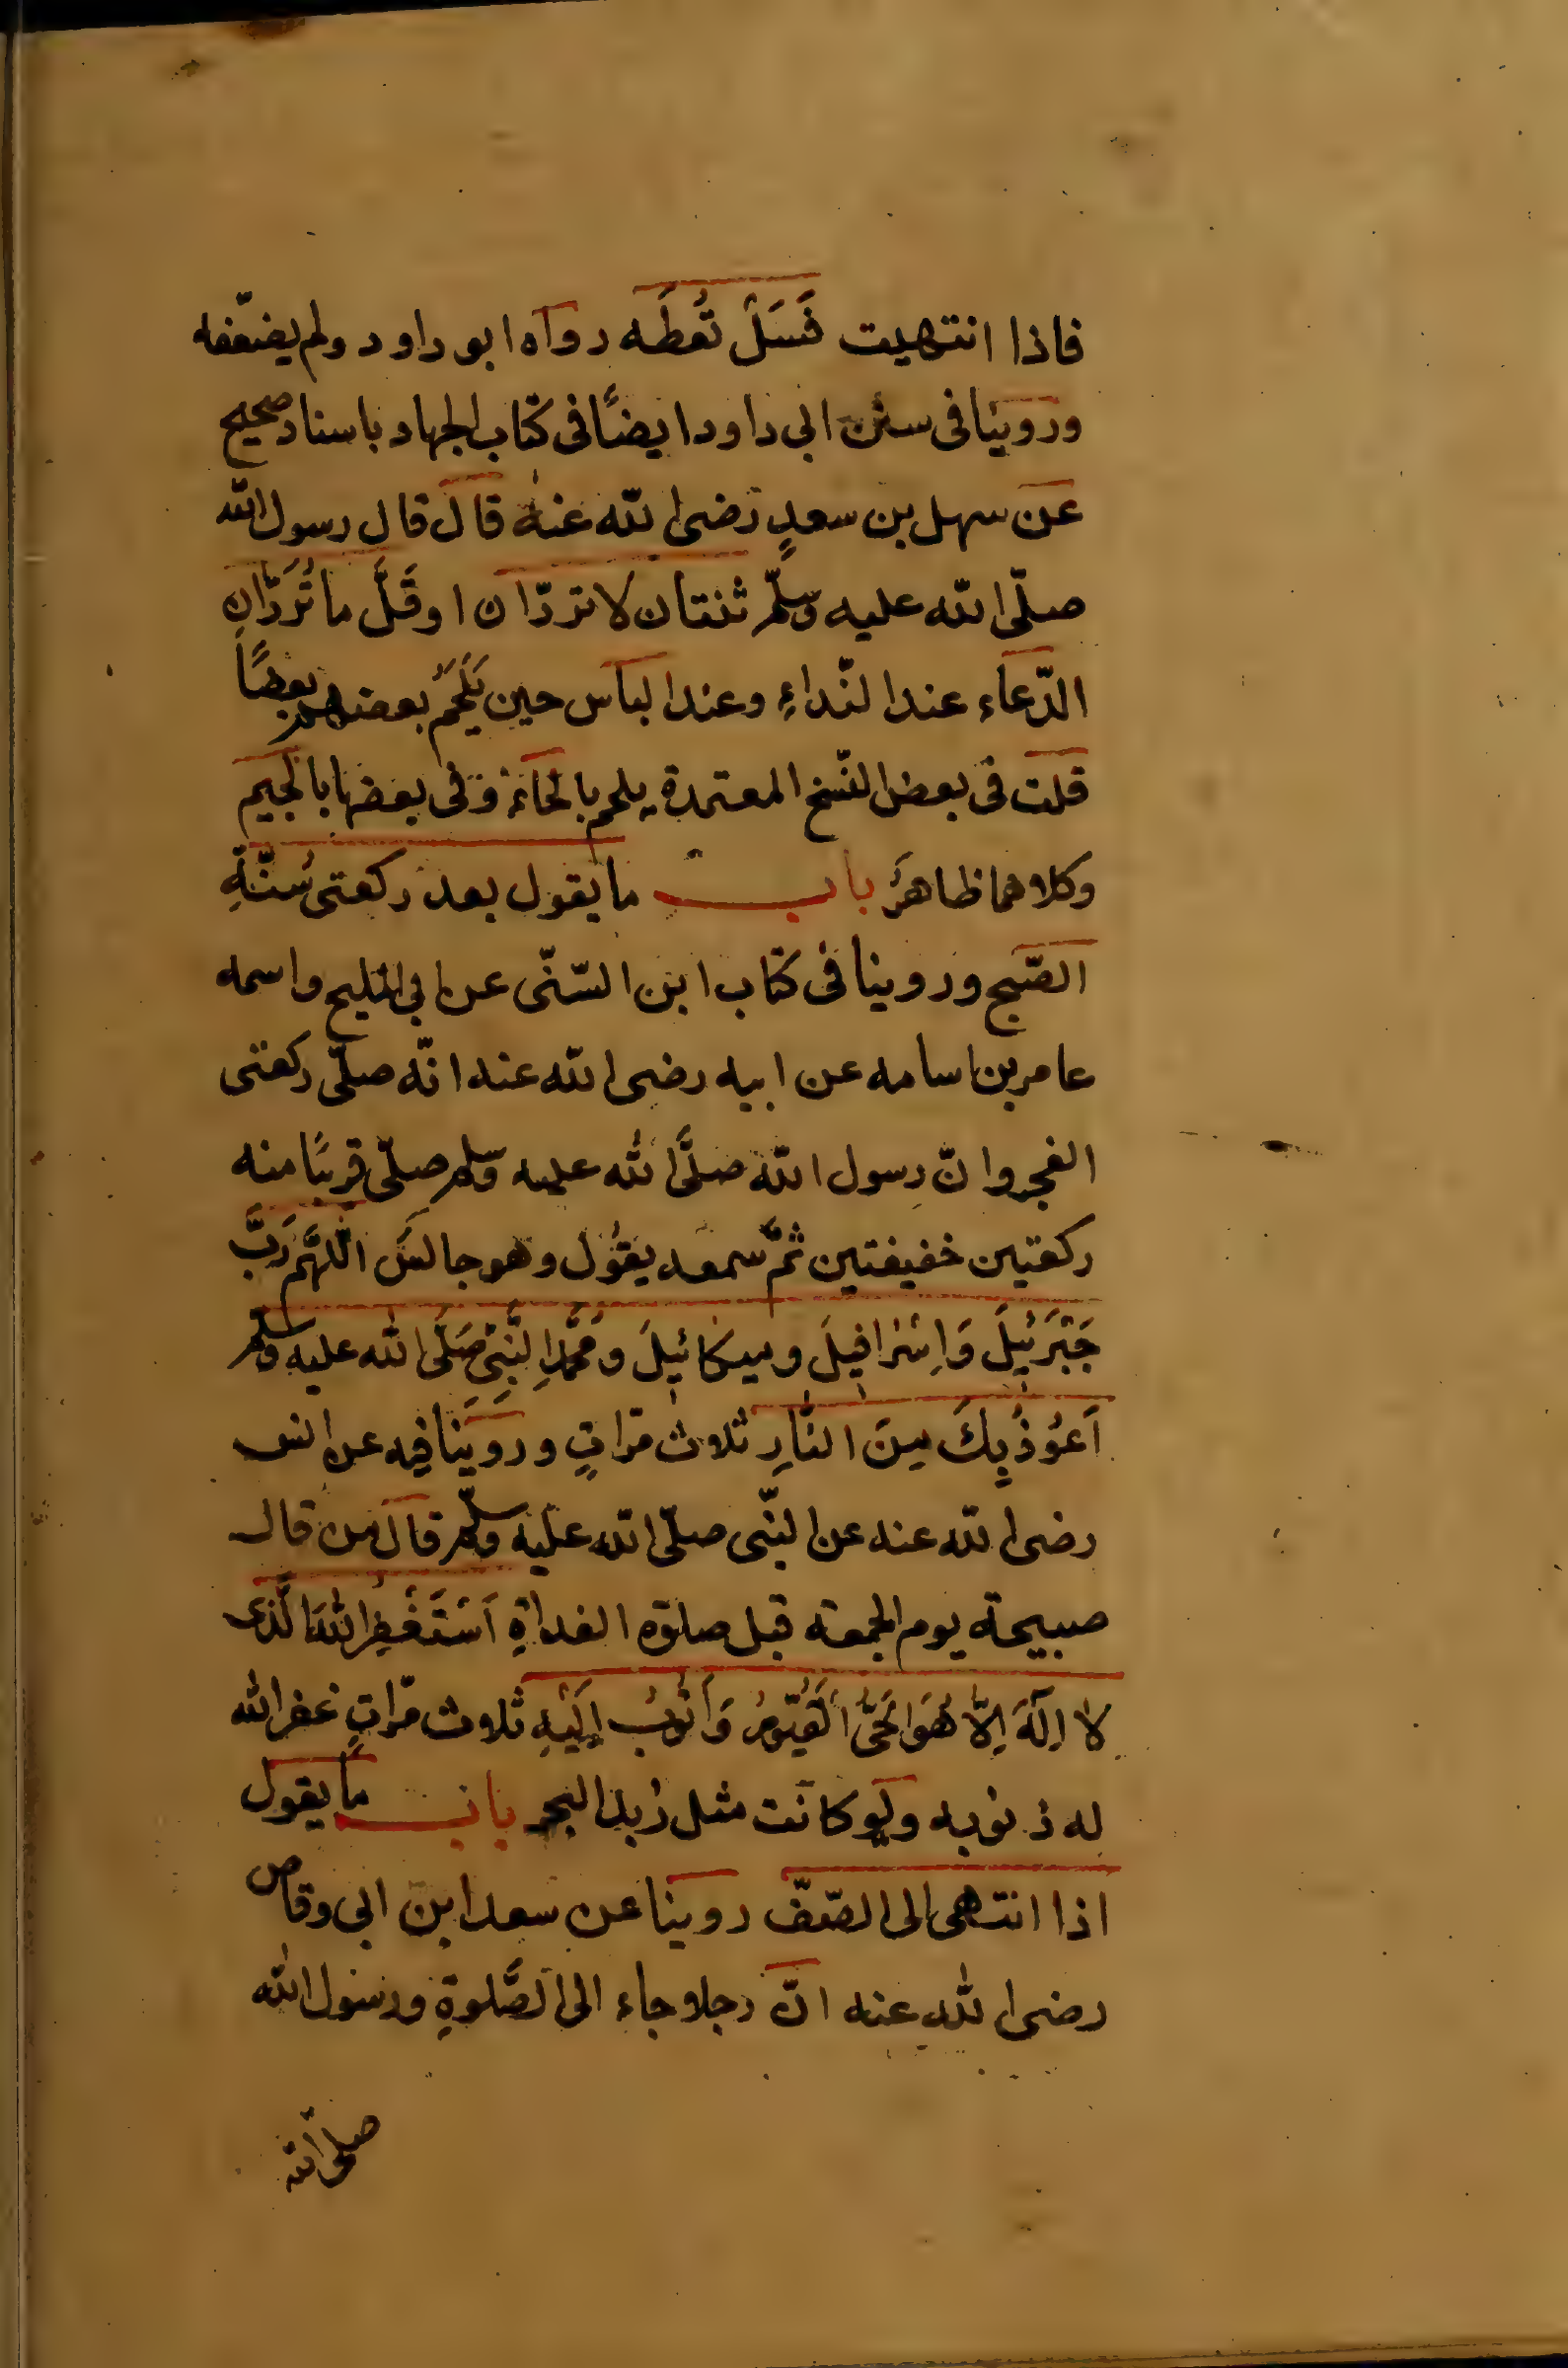 فاذا انتهيت فَسَلْ تُعْطَه رواه ابو داود ولم يضعّفه
وروينا فى سنن ابى داود ايضًا فى كتاب الجهاد باسناد صحيح
عن سهل بن سعدٍ رضى الله عنه قال قال رسول الله
صلّى الله عليه وسلّم ثنتان لا تردّان او قَلَّ ما تُرَدَّانِ
الدّعاء عند النّداءِ وعند الباس حين يَلْحَمُ بعضهم بعضًا
قلت فى بعض النّسخ المعتمدة يلحم بالحاء وفى بعضها بالجيم
وكلاهما ظاهرٌ باب ما يقول بعد ركعتى سُنَّةِ
الصّبح وروينا فى كتاب ابن السّنّى عن ابى المليح واسمه
عامر بن اسامه عن ابيه رضى الله عنه انّه صلّى ركعتى
الفجر وانّ رسول الله صلَّى الله عليه وسلم صلّى قريبًا منه
ركعتين خفيفتين ثمَّ سمعه يقُول وهو جالسٌ اللّهُمَّ رَبَّ
جَبْرَئِيلَ وَاِسْرَافِيلَ وميكائيلَ ومُحَمَّدٍ النَّبِىِّ صَلَّى الله عليه وسلّم
اَعُوْذُ بِكَ مِنَ النَّارِ ثلاث مرّاتٍ وروينا فيه عن انس
رضى الله عنه عن النّبى صلّى الله عليه وسلّم قال من قال
صبيحة يوم الجمعة قبل صلوة الغداةِ اَسْتَغْفِرُ اللهَ الَّذى
لا اِلٰهَ اِلاَّ هُوَ الْحَىُّ الْقَيُّومُ وَاَتُوبُ اِلَيْهِ ثلاث مرّاتٍ غفر الله
له ذنوبه ولو كانت مثل زبد البحر باب ما يقول
اذا انتهى الى الصّفّ روينا عن سعد ابن ابى وقاص
رضى الله عنه انّ رجلا جاء الى الصَّلوةِ ورسول الله
صلى الله